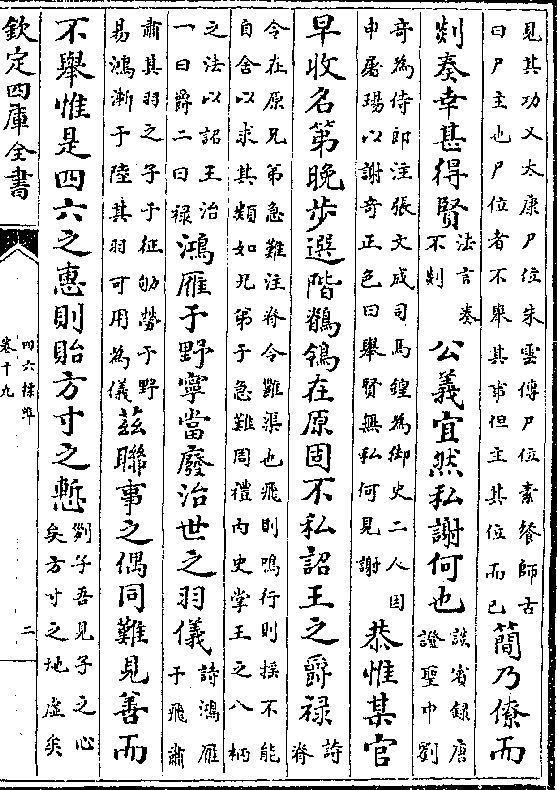 見其功又太康尸位朱雲傳尸位素餐師古
曰尸主也尸位者不舉其事但主其位而已
簡乃僚而
剡奏幸甚得賢
法言奏
不剡
公義宜然私謝何也
談賓録唐
證聖中劉
奇為侍郎注張文成司馬鍠為御史二人因
申屠瑒以謝奇正色曰舉賢無私何見謝
恭惟某官
早收名第晚步選階鶺鴒在原固不私詔王之爵禄
詩
脊
令在原兄弟急難注脊令雝渠也飛則鳴行則揺不能
自舍以求其類如兄弟于急難周禮内史掌王之八柄
之法以詔王治
一曰爵二曰禄
鴻雁于野寧當廢治世之羽儀
詩鴻雁
于飛肅
肅其羽之子于征劬勞于野
易鴻漸于陸其羽可用為儀
茲聯事之偶同難見善而
不舉惟是四六之惠則貽方寸之慙
列子吾見子之心
矣方寸之地虚矣
欽定四庫全書
四六標準
卷十九
二